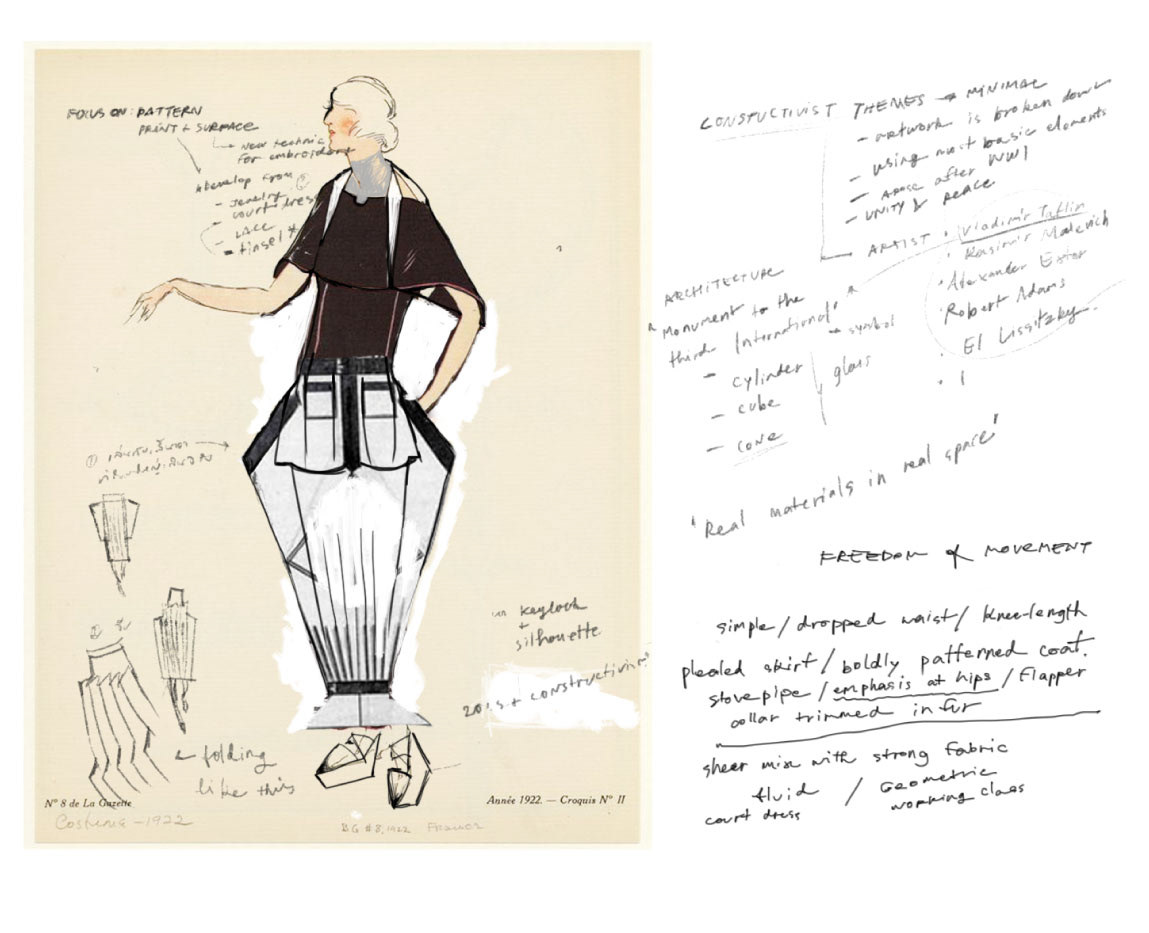 FOCUS ON: PATTERN
PRINT + SURFACE
New technic
for embroidery
develop from
- Jewelry
court dress
- LACE
- tinsel *
①
folding
like this
keylock
+
silhouette
20's + constructivism
Nº 8 de La Gazette
Année 1922. — Croquis Nº II
Costume - 1922
BG #8, 1922 France
CONSTUCTIVIST THEMES → MINIMAL
- artwork is broken down
- using most basic elements
- AROSE after WW1
- UNITY & peace
ARTIST
• Vladimir Tatlin
• Kasimir Malevich
• Alexander Exter
• Robert Adams
• El Lissitzky
ARCHITECTURE
monument to the
third International
→ symbol
- cylinder
- cube
- cone
glass
'Real materials in real space'
FREEDOM of MOVEMENT
simple / dropped waist / knee-length
pleated skirt / boldly patterned coat.
stovepipe / emphasis at hips / Flapper
collar trimmed in fur
sheer mix with strong fabric
fluid / Geometric
court dress working class